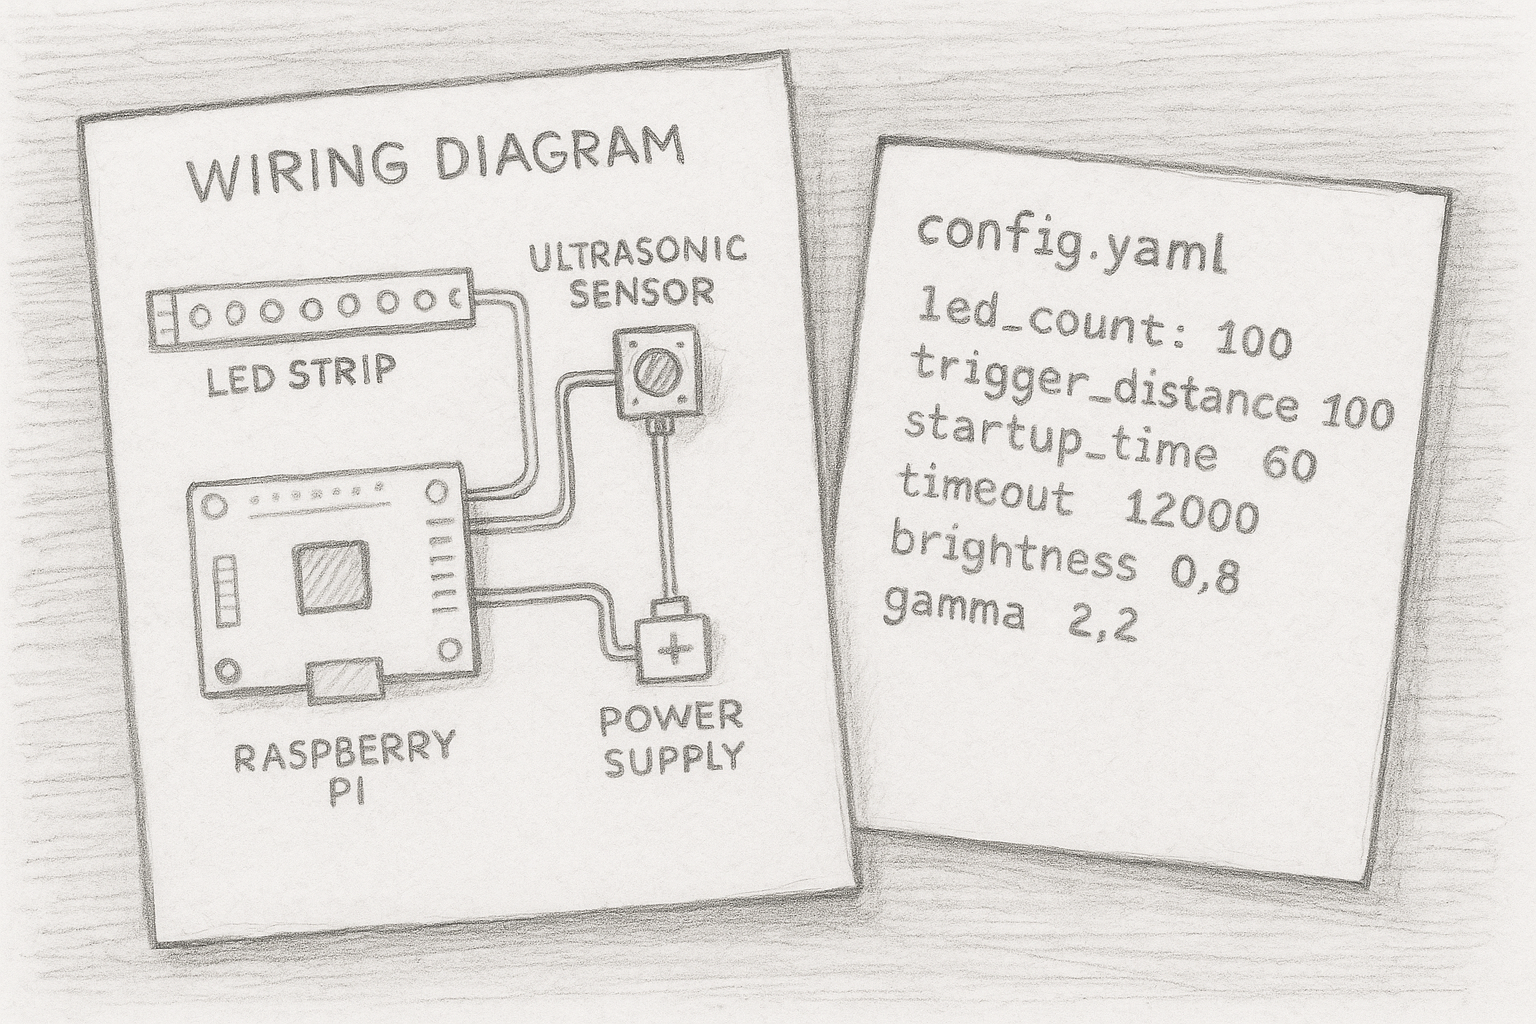 WIRING DIAGRAM
ULTRASONIC
SENSOR
LED STRIP
RASPBERRY
PI
POWER
SUPPLY
config.yaml
led_count: 100
trigger_distance 100
startup_time 60
timeout 12000
brightness 0,8
gamma 2,2